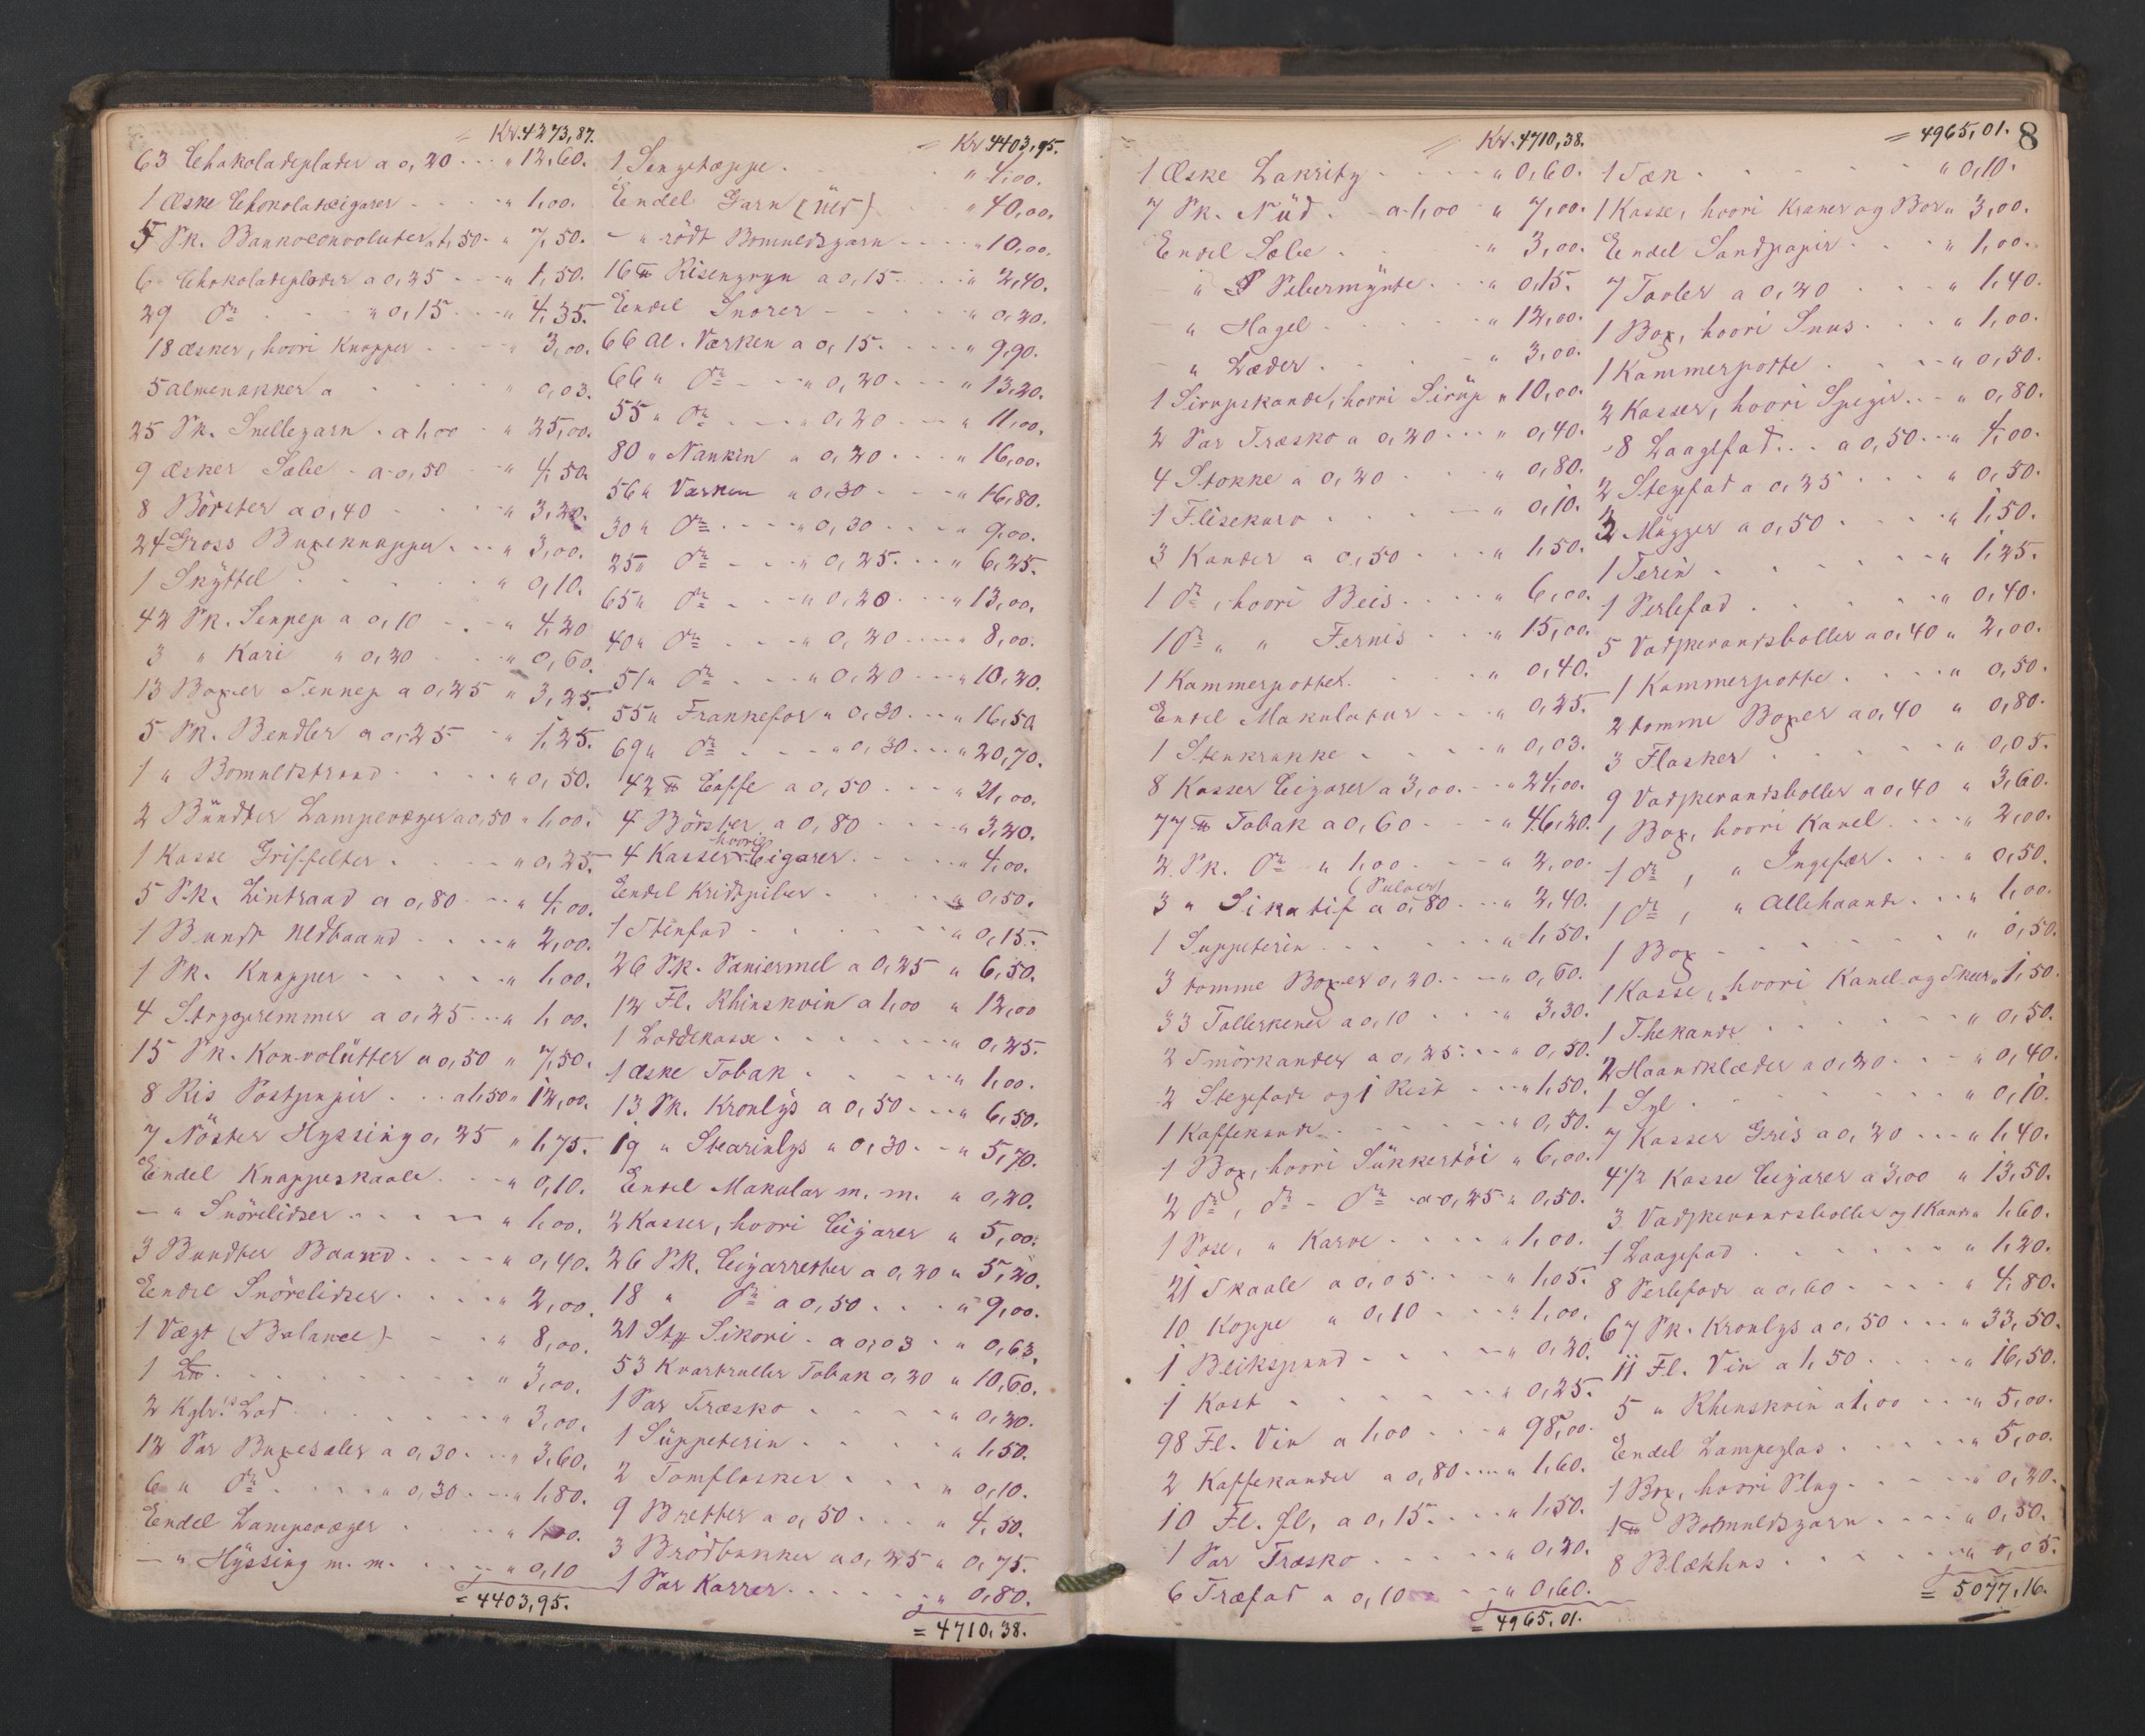 = Kr. 4273,87.
63 Chokoladeplader a 0,20 . . . " 12,60.
1 Æske Chokolakeigarer . . . . " 1,00.
5 Pk. Bankoconvoluter a 1,50 . " 7,50.
6 Chokoladeplader a 0,25 . . . " 1,50.
29 do . . . " 0,15 . . . " 4,35.
18 Æsker, hvori Knapper . . . " 3,00.
5 Almenakker a . . . . " 0,03.
25 Pk. Snellegarn . a 1,00 . " 25,00.
9 Æsker Sæbe . a 0,50 " 4,50
8 Börster a 0,40 . . . " 3,20.
24 Gross Buxeknapper . . " 3,00.
1 Skyttel . . . . " 0,10.
42 Pk. Sennep a 0,10 . . " 4,20
3 " Kari " 0,20 . . " 0,60.
13 Boxer Sennep a 0,25 " 3,25.
5 Pk. Bendler a 0,25 . " 1,25.
1 " Bomuldstraad . . . " 0,50.
2 Bündter Lampevæger a 0,50 " 1,00.
1 Kasse Griffelter . . . " 0,25.
5 Pk. Lintraad a 0,80 . . " 4,00.
1 Bundt Uldbaand . . . . " 2,00.
1 Pk. Knapper . . . . . " 1,00.
4 Strygeremmer a 0,25 . . " 1,00.
15 Pk. Konvolütter a 0,50 " 7,50.
8 Ris Postpapir . . a 1,50 " 12,00.
7 Nöster Hyssing 0,25 " 1,75.
Endel Knappeskaale . . " 0,10.
— " Snörelidser . . . . " 1,00.
3 Bundter Baand . . . . " 0,40.
Endel Snörelidser . . . . " 2,00.
1 Vægt (Balance) - - " 8,00.
1 do . . . . . . " 3,00.
2 Kglr. Lod . . . . " 3,00.
12 Par Buxesæler a 0,30 . . " 3,60.
6 " do . . . " 0,30 . . " 1,80.
Endel Lampevæger . . . " 1,00.
— " Hyssing m. m. . . . " 0,10
= 4403,95.
= Kr. 4403,95.
1 Sengetæppe . . . " 4,00.
Endel Garn (ü) . . " 40,00.
— " rödt Bomuldsgarn . . . " 10,00.
16 ℔ Risengryn a 0,15 . . . " 2,40.
Endel Snorer - . . . " 0,20.
66 Al. Værken a 0,15 . . . " 9,90.
66 " do - . . " 0,20 . . . " 13,20.
55 " do . . . " 0,20 . . " 11,00.
80 " Nankin " 0,20 . . . " 16,00.
56 " Værken " 0,30 . . . " 16,80.
30 " do . . . " 0,30 . . . " 9,00.
25 " do - . . " 0,25 . . " 6,25.
65 " do - . . " 0,20 . . " 13,00.
40 " do . . . " 0,20 . . . " 8,00.
51 " do . . . " 0,20 . . . " 10,20.
55 " Frankefor " 0,30 . . . " 16,50
69 " do - . . . " 0,30 . . . " 20,70.
42 ℔ Caffe a 0,50 . . . " 21,00.
4 Börster a 0,80 . . . " 3,20.
4 Kasser hvori Cigarer . . . . " 4,00.
Endel Kridtpiber . . . . " 0,50.
1 Stenfad . . . . . " 0,15.
26 Pk. Paniermel a 0,25 " 6,50.
12 Fl. Rhinskvin a 1,00 " 12,00
1 Loddekasse . . . . . " 0,25.
1 Æske Tobak . . . . . " 1,00.
13 Pk. Kronlÿs a 0,50 . . . " 6,50.
19 " Stearinlys " 0,30 . . " 5,70.
Endel Makular m. m. " 0,20.
2 Kasser, hvori Cigarer " 5,00.
26 Pk. Cigarretter a 0,20 " 5,20.
18 " do a 0,50 . . . " 9,00.
21 Stk Sikori . a 0,03 . " 0,63.
53 Kvartruller Tobak 0,20 " 10,60.
1 Par Træsko . . . . . " 0,20.
1 Süppeterin . . . . . " 1,50.
2 Tomflasker . . . . " 0,10.
9 Bretter a 0,50 . . . " 4,50.
3 Brödbakker a 0,25 " 0,75.
1 Par Karrer . . . . . . " 0,80.
= 4710,38.
= Kr. 4710,38.
1 Æske Lakrits . . . . " 0,60.
7 Pk. Nüd . a 1,00 " 7,00.
Endel Sæbe . . . " 3,00.
" Pebermynte . . . " 0,15.
" Hagel . . . . " 12,00.
" Læder . . . . " 3,00.
1 Sirupskande, hvori Sirüp " 10,00.
2 Par Træsko a 0,20 . . . " 0,40.
4 Stokke a 0,20 . . . " 0,80.
1 Flisekurv . . . . " 0,10.
3 Kander a 0,50 . . . " 1,50.
1 do, hvori Beis . . . . " 6,00.
1 do " " Fernis . . . " 15,00.
1 Kammerpotte . . . . " 0,40.
Endel Makulatur . . . " 0,25.
1 Stenkrukke . . . . " 0,03.
8 Kasser Cigarer a 3,00 . . " 24,00.
77 ℔ Tobak a 0,60 . . . " 46,20.
2 Pk. do " 1,00 . . . " 2,00
3 " Sikatif (Pulver) a 0,80 . . . " 2,40.
1 Suppeterin . . . . . " 1,50.
3 tomme Boxer 0,20 . . . " 0,60.
33 Tallerkener a 0,10 . . . " 3,30.
2 Smörkander a 0,25 . . . " 0,50.
2 Stegefade og 1 Rist . . . " 1,50.
1 Kaffekande . . . . . " 0,50.
1 Box, hvori Sükkertöi " 6,00.
2 do, do - do a 0,25 " 0,50.
1 Pose, " Karve . . . . " 1,00.
21 Skaale a 0,05 . . . " 1,05.
10 Koppe " 0,10 . . . " 1,00.
1 Beikspand . . . . . " 0,20.
1 Kost . . . . . . " 0,25.
98 Fl. Vin a 1,00 . . . " 98,00.
2 Kaffekander a 0,80 . . . " 1,60.
10 Fl. Øl, a 0,15 . . . . " 1,50.
1 Par Træsko . . . . . " 0,20.
6 Træfad a 0,10 . . " 0,60.
= 4965,01.
= 4965,01. 8
1 Sæk . . . . . " 0,10.
1 Kasse, hvori Kraner og Bor " 3,00.
Endel Sandpapir . . . " 1,00.
7 Tavler a 0,20 . . . " 1,40.
1 Box, hvori Snus . . . " 1,00.
1 Kammerpotte . . . " 0,50.
2 Kasser, hvori Spiger . . . " 0,80.
8 Laagefad . . . a 0,50 . . . " 4,00.
2 Stegefad a 0,25 . . . " 0,50.
3 Mugger a 0,50 . . . . " 1,50.
1 Terin . . . . . . " 1,25.
1 Perlefad . . . . . " 0,40.
5 Vadskevandsboller a 0,40 " 2,00.
1 Kammerpotte . . . . " 0,50.
2 tomme Boxer a 0,40 " 0,80.
3 Flasker . . . . . " 0,05.
9 Vadskevandsboller a 0,40 " 3,60.
1 Box, hvori Kanel . . . . " 2,00.
1 do, " Ingefær . . . " 0,50.
1 do, " Allehaande . . . " 1,00.
1 Box . . . . . . " 0,50.
1 Kasse, hvori Kanel og Skeer " 1,50.
1 Thekande . . . . . . " 0,50.
2 Haandklæder a 0,20 . . . " 0,40.
1 Syl . . . . . . . " 0,10.
7 Kasser Gris a 0,20 . . . " 1,40.
4 1/2 Kasse Cigarer a 3,00 " 13,50.
3 Vadskevandsboller og 1 Kande " 1,60.
1 Laagefad . . . . . . " 1,20.
8 Perlefade a 0,60 . . . . " 4,80.
67 Pk. Kronlys a 0,50 . . . " 33,50.
11 Fl. Vin a 1,50 . . . . " 16,50.
5 " Rhinskvin a 1,00 . . . " 5,00.
Endel Lampeglas . . . . . " 5,00.
1 Box, hvori Plug . . . . " 0,20.
1 ℔ Bomuldsgarn . . . . " 0,50.
8 Blækhus . . . . . . " 0,05.
= 5077,16.